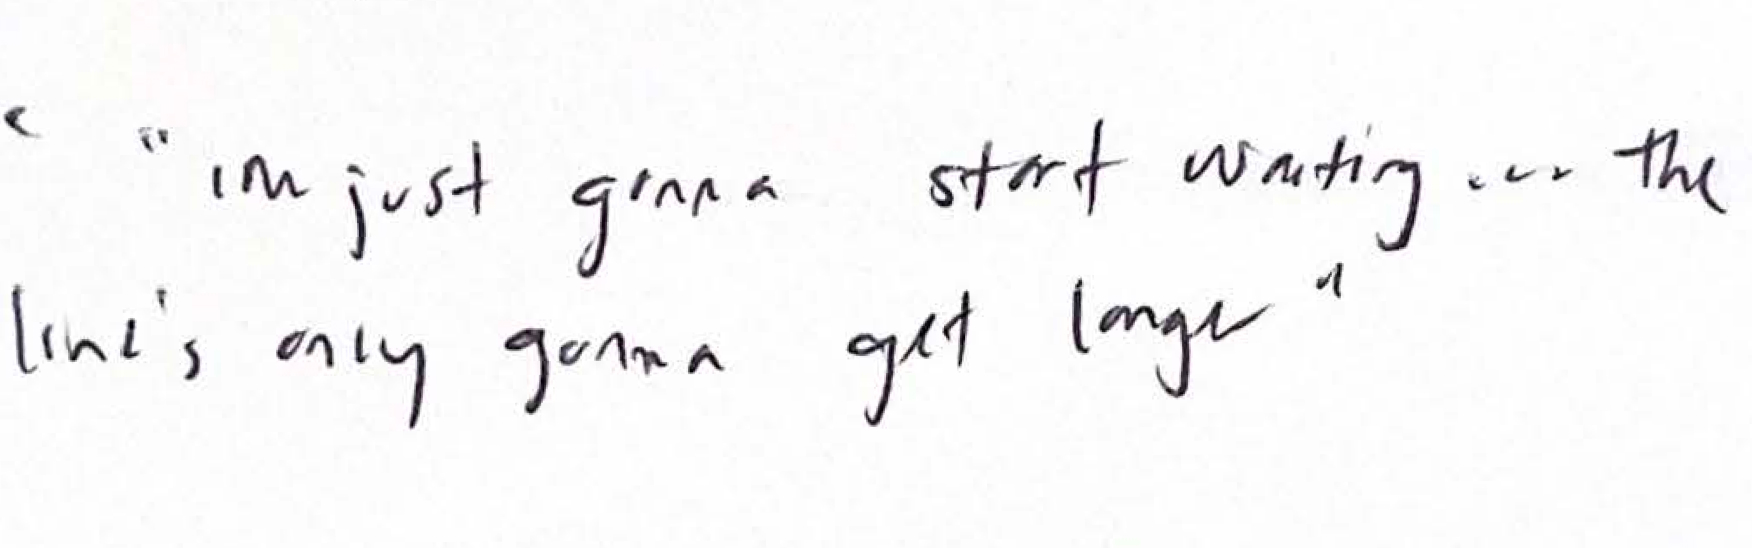 "im just gonna start waiting ... the
line's only gonna get longer"